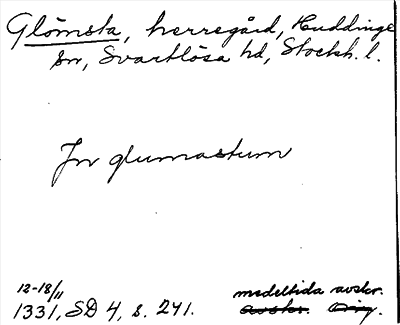 Glömsta, herregård, Huddinge
sn, Svartlösa hd, Stockh. l.
Jn glumastum
12-18/11
1331, SD 4, s. 241.
medeltida avskr.
avskr. orig.